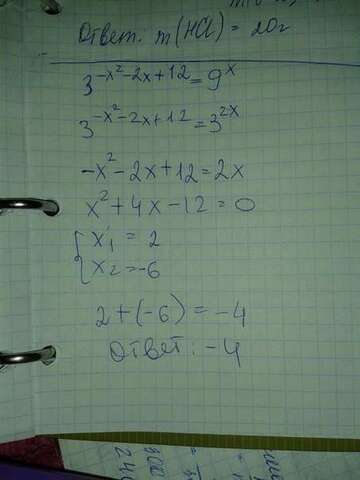 Ответ: m(HCl) = 20г
3^{-x²-2x+12} = 9^x
3^{-x²-2x+12} = 3^{2x}
-x²-2x+12=2x
x²+4x-12=0
{ x₁ = 2
x₂ = -6
2+(-6) = -4
Ответ: -4